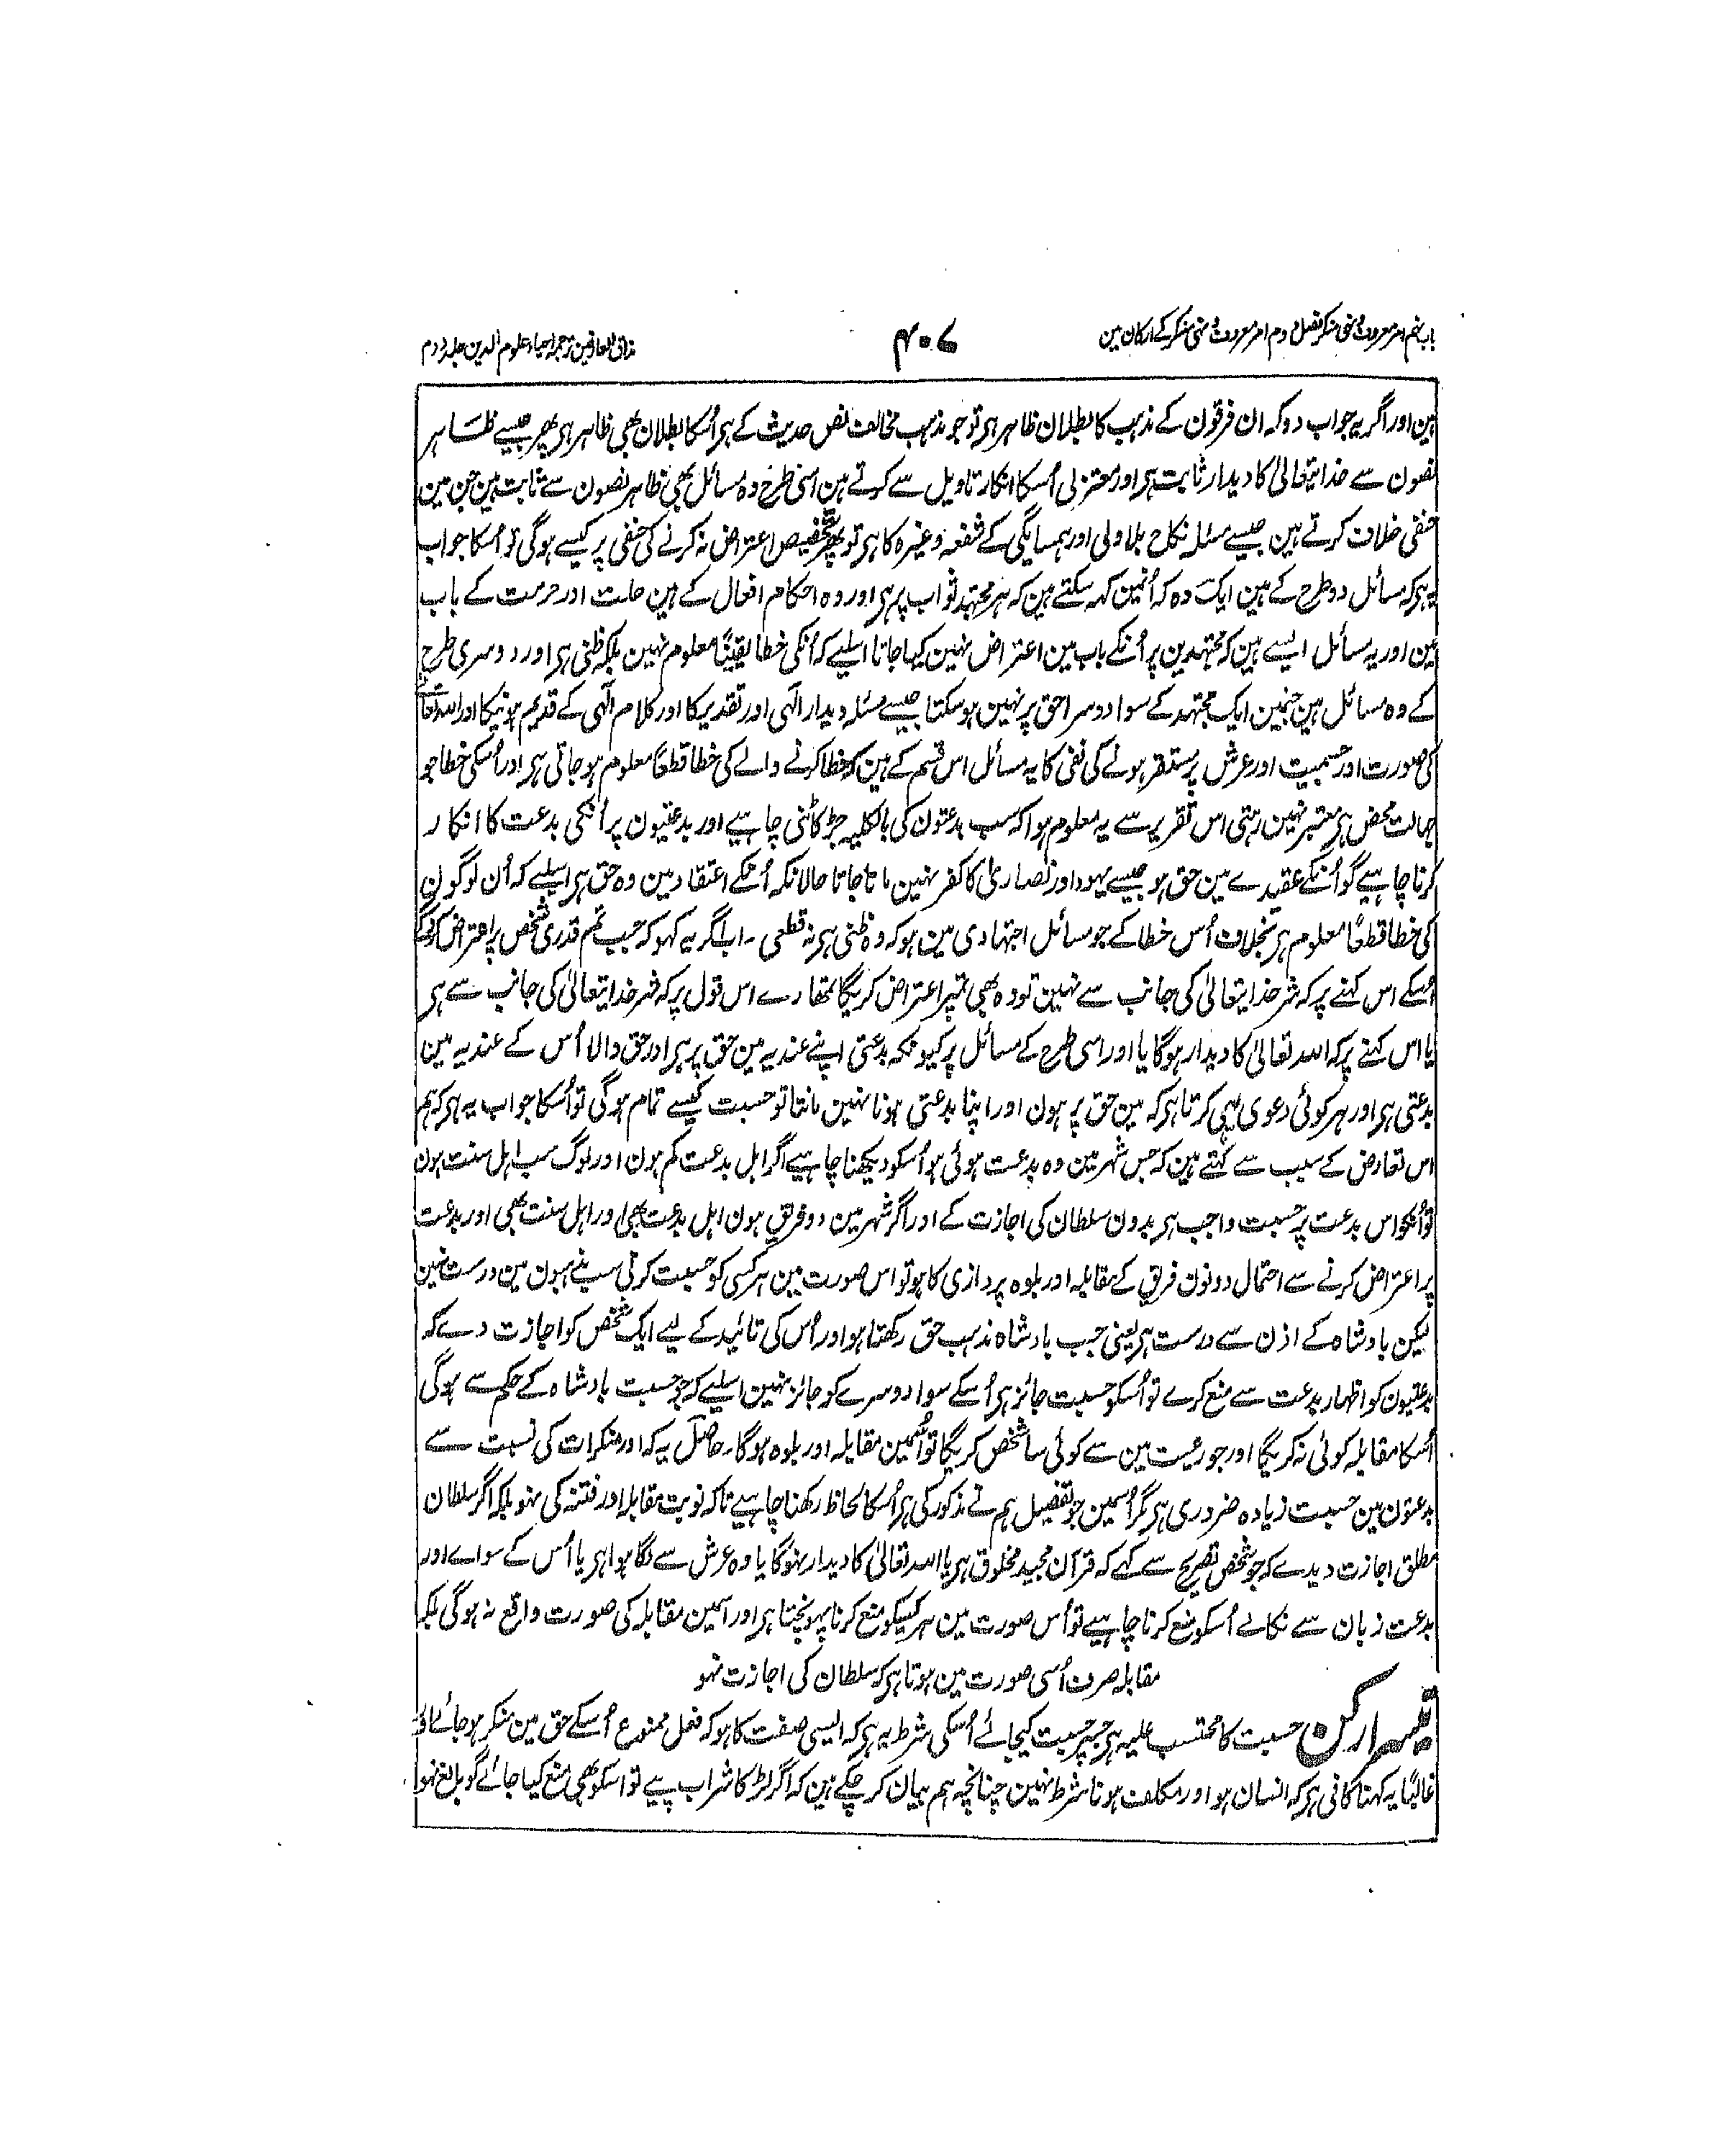 باب نہم امر معروف و نہی منکر فصل دوم امر معروف و نہی منکر کے ارکان مین
۴۰۷
مذاق العارفین ترجمہ احیاء علوم الدین جلد دوم
ہین اور اگر یہ جواب دو کہ ان فرقون کے مذہب کا بطلان ظاہر ہی تو جو مذہب مخالف نص حدیث کے ہی اُسکا بطلان بھی ظاہر ہی پھر جیسے ظاہر
نصون سے خدایتعالیٰ کا دیدار ثابت ہی اور معتزلی اُسکا انکار تاویل سے کرتے ہین اسی طرح وہ مسائل بھی ظاہر نصون سے ثابت ہین جن مین
حنفی خلاف کرتے ہین جیسے مسئلہ نکاح بلا ولی اور ہمسایگی کے شفعہ وغیرہ کا ہی تو پھر تخصیص اعتراض نہ کرنے کی حنفی پر کیسے ہوگی تو اُسکا جواب
یہ ہی کہ مسائل دو طرح کے ہین ایک وہ کہ اُنمین کہہ سکتے ہین کہ ہر مجتہد ثواب پر ہی اور وہ احکام افعال کے ہین حلت اور حرمت کے باب
مین اور یہ مسائل ایسے ہین کہ مجتہدین پر اُنکے باب مین اعتراض نہین کیا جاتا اسلیے کہ اُنکی خطا یقیناً معلوم نہین بلکہ ظنی ہی اور دوسری طرح
کے وہ مسائل ہین جنمین ایک مجتہد کے سوا دوسرا حق پر نہین ہو سکتا جیسے مسئلہ دیدار الٰہی اور تقدیر کا اور کلام الٰہی کے قدیم ہونیکا اور اللہ تعالیٰ
کی صورت اور جسمیت اور عرش پر مستقر ہونے کی نفی کا یہ مسائل اس قسم کے ہین کہ خطا کرنے والے کی خطا قطعاً معلوم ہو جاتی ہی اور اُسکی خطا جو
جہالت محض ہی معتبر نہین رہتی اس تقریر سے یہ معلوم ہوا کہ سب بدعتون کی بالکلیہ جڑ کاٹنی چاہیے اور بدعتیون پر اُنکی بدعت کا انکار
کرنا چاہیے گو اُنکے عقیدے مین حق ہو جیسے یہود اور نصاریٰ کا کفر نہین مانا جاتا حالانکہ اُنکے اعتقاد مین وہ حق ہی اسلیے کہ اُن لوگون
کی خطا قطعاً معلوم ہی بخلاف اُس خطا کے جو مسائل اجتہادی مین ہو کہ وہ ظنی ہی نہ قطعی ۔ اب اگر یہ کہو کہ جب تم قدری شخص پر اعتراض کروگے
اُسکے اس کہنے پر کہ شر خدایتعالیٰ کی جانب سے نہین تو وہ بھی تمپر اعتراض کریگا تمھارے اس قول پر کہ شر خدایتعالیٰ کی جانب سے ہی
یا اس کہنے پر کہ اللہ تعالیٰ کا دیدار ہوگا یا اور اسی طرح کے مسائل پر کیونکہ بدعتی اپنے عندیہ مین حق پر ہی اور حق والا اُس کے عندیہ مین
بدعتی ہی اور ہر کوئی دعوی یہی کرتا ہی کہ مین حق پر ہون اور اپنا بدعتی ہونا نہین مانتا تو حسبت کیسے تمام ہوگی تو اُسکا جواب یہ ہی کہ ہم
اس تعارض کے سبب سے کہتے ہین کہ جس شہر مین وہ بدعت ہوئی ہو اُسکو دیکھنا چاہیے اگر اہل بدعت کم ہون اور لوگ سب اہل سنت ہون
تو اُنکو اس بدعت پر حسبت واجب ہی بدون سلطان کی اجازت کے اور اگر شہر مین دو فریق ہون اہل بدعت بھی اور اہل سنت بھی اور بدعت
پر اعتراض کرنے سے احتمال دونون فریق کے مقابلہ اور بلوہ پردازی کا ہو تو اس صورت مین ہر کسی کو حسبت کرنی مذہبون مین درست نہین
لیکن بادشاہ کے اذن سے درست ہی یعنی جب بادشاہ مذہب حق رکھتا ہو اور اُس کی تائید کے لیے ایک شخص کو اجازت دے کہ
بدعتیون کو اظہار بدعت سے منع کرے تو اُسکو حسبت جائز ہی اُسکے سوا دوسرے کو جائز نہین اسلیے کہ جو حسبت بادشاہ کے حکم سے ہوگی
اُسکا مقابلہ کوئی نہ کریگا اور جو رعیت مین سے کوئی سا شخص کریگا تو اُسمین مقابلہ اور بلوہ ہوگا۔ حاصل یہ کہ اور منکرات کی نسبت سے
بدعتون مین حسبت زیادہ ضروری ہی مگر اُسمین جو تفصیل ہم نے مذکور کی ہی اُسکا لحاظ رکھنا چاہیے تاکہ نوبت مقابلہ اور فتنہ کی نہو بلکہ اگر سلطان
مطلق اجازت دیدے کہ جو شخص تصریح سے کہے کہ قرآن مجید مخلوق ہی یا اللہ تعالیٰ کا دیدار نہوگا یا وہ عرش سے لگا ہوا ہی یا اُس کے سواے اور
بدعت زبان سے نکالے اُسکو منع کرنا چاہیے تو اُس صورت مین ہر کسیکو منع کرنا پہونچتا ہی اور اسمین مقابلہ کی صورت واقع نہ ہوگی بلکہ
مقابلہ صرف اُسی صورت مین ہوتا ہی کہ سلطان کی اجازت نہو
تیسرا رکن حسبت کا محتسب علیہ ہی جسپر حسبت کیجائے اُسکی شرط یہ ہی کہ ایسی صفت کا ہو کہ فعل ممنوع اُسکے حق مین منکر ہو جائے اور
غالباً یہ کہنا کافی ہی کہ انسان ہو اور مکلف ہونا شرط نہین چنانچہ ہم بیان کر چکے ہین کہ اگر لڑکا شراب پیے تو اسکو بھی منع کیا جائے گو بالغ نہو